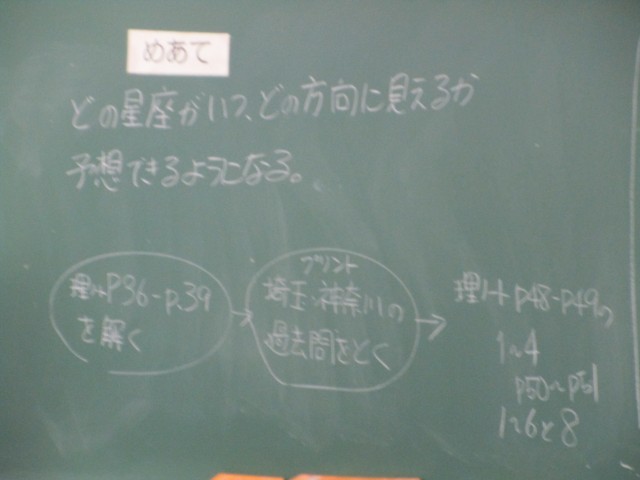 めあて
どの星座がいつ、どの方向に見えるか
予想できるようになる。
理ハ+P36-P.39
を解く
プリント
埼玉、神奈川の
過去問をとく
理ハ+P48-P49の
1~4
P50~P51
1~6と8